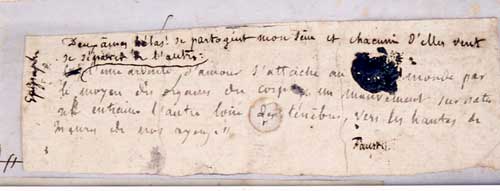 Deux âmes hélas! se partagent mon sein et chacune d'elles veut
se séparer de l'autre:
l'une ardente d'amour s'attache au monde par
le moyen des organes du corps, un mouvement surnatu
entraine l'autre loin des ténèbres, vers les hautes de
meures de nos ayeux"
Faust
Epigraphe